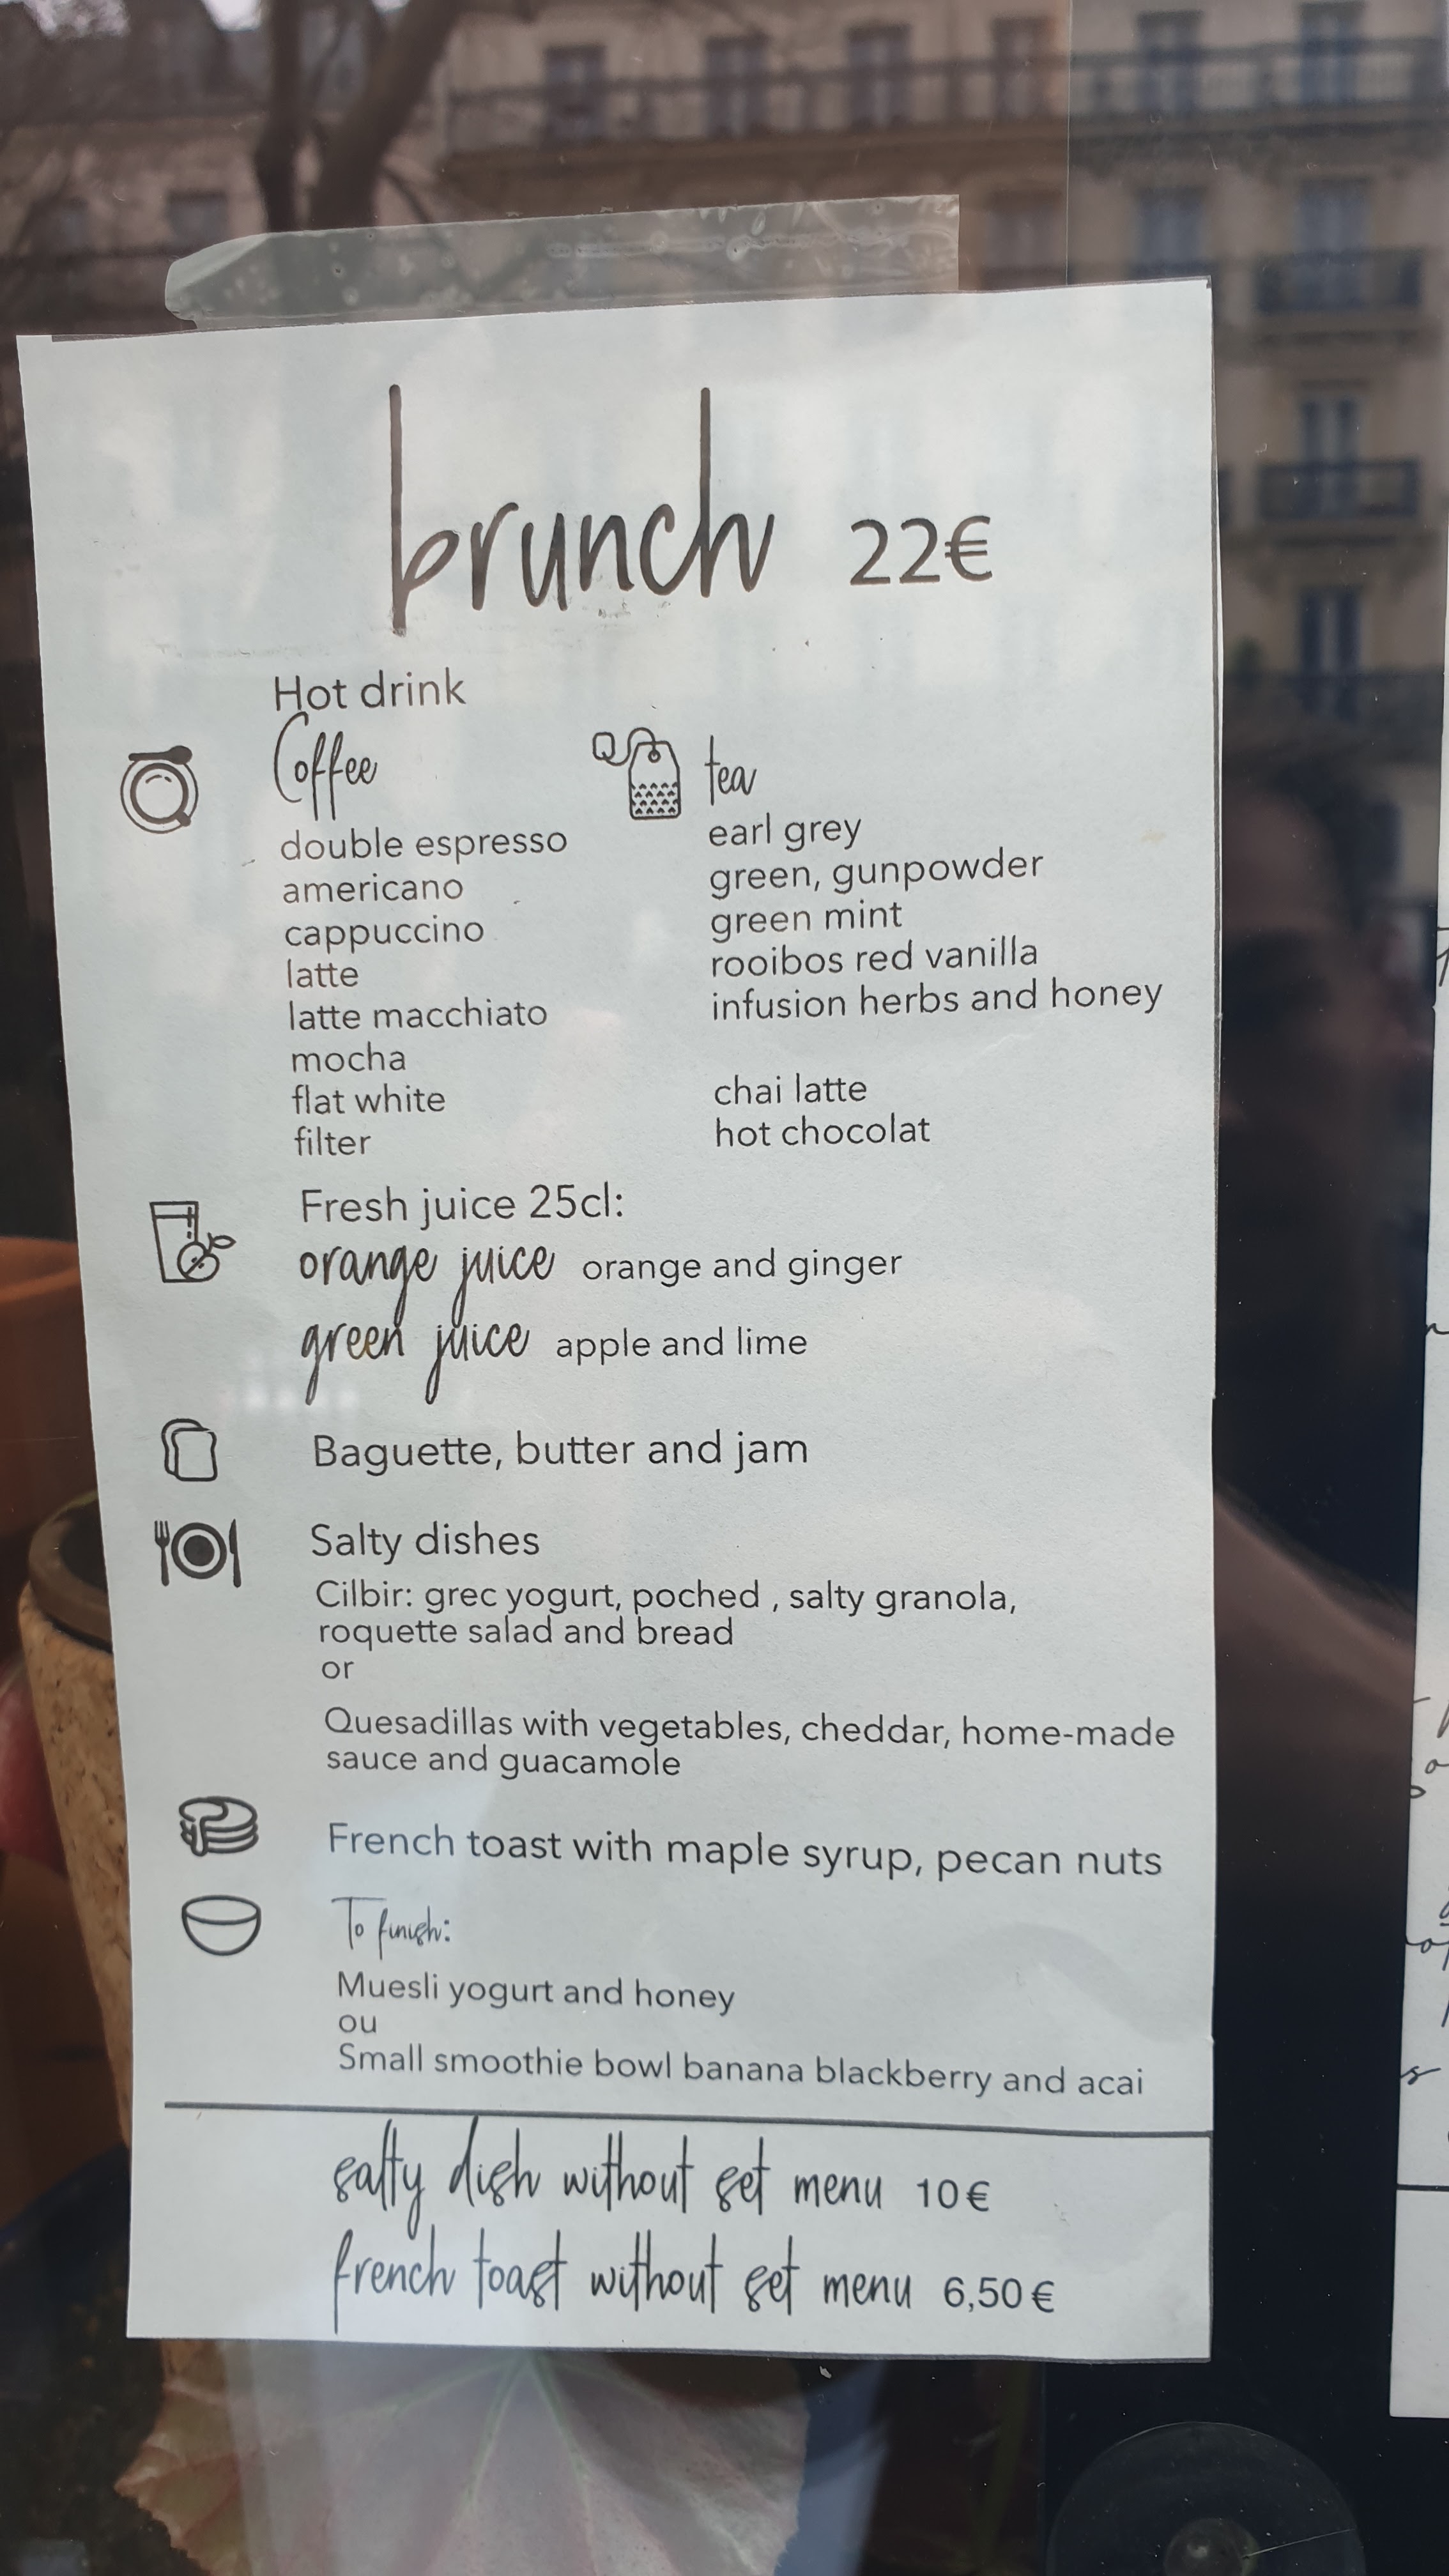 brunch 22€
Hot drink
Coffee
double espresso
americano
cappuccino
latte
latte macchiato
mocha
flat white
filter
tea
earl grey
green, gunpowder
green mint
rooibos red vanilla
infusion herbs and honey
chai latte
hot chocolat
Fresh juice 25cl:
orange juice orange and ginger
green juice apple and lime
Baguette, butter and jam
Salty dishes
Cilbir: grec yogurt, poched , salty granola,
roquette salad and bread
or
Quesadillas with vegetables, cheddar, home-made
sauce and guacamole
French toast with maple syrup, pecan nuts
To finish:
Muesli yogurt and honey
ou
Small smoothie bowl banana blackberry and acai
salty dish without set menu 10€
french toast without set menu 6,50€